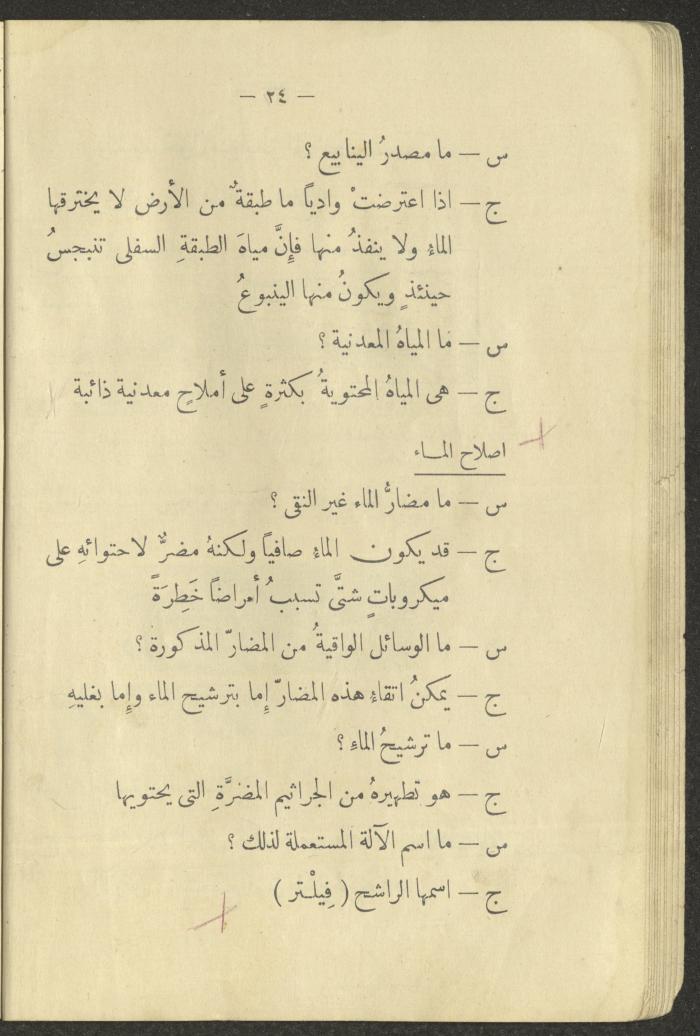 — ٢٤ —
س — ما مصدرُ الينابيع ؟
ج — اذا اعترضتْ وادياً ما طبقةٌ من الأرض لا يخترقها
الماءُ ولا ينفذُ منها فإِنَّ مياهَ الطبقةِ السفلى تنبجسُ
حينئذٍ ويكونُ منها الينبوعُ
س — ما المياهُ المعدنية ؟
ج — هى المياهُ المحتويةُ بكثرةٍ على أملاحٍ معدنية ذائبة
اصلاح المـاء
س — ما مضارُّ الماء غير النقى ؟
ج — قد يكون الماءُ صافياً ولكنهُ مضرٌّ لاحتوائهِ على
ميكروباتٍ شتَّى تسببُ أمراضاً خَطِرَةً
س — ما الوسائل الواقيةُ من المضارّ المذكورة ؟
ج — يمكنُ اتقاءُ هذه المضارّ إِما بترشيح الماء وإِما بغليهِ
س — ما ترشيحُ الماءِ ؟
ج — هو تطهيرهُ من الجراثيم المضرَّةِ التى يحتويها
س — ما اسم الآلة المستعملة لذلك ؟
ج — اسمها الراشح ( فِيلْتر )